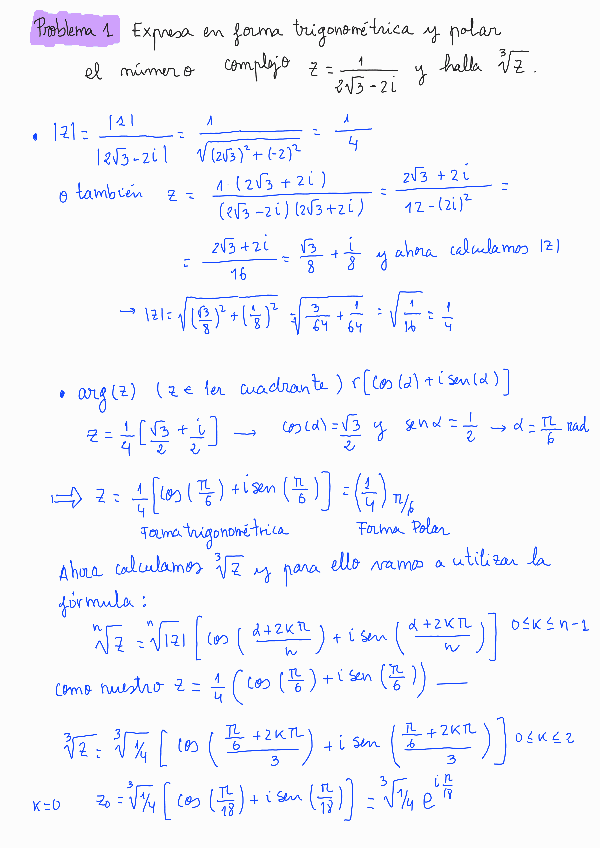 Problema 1 Expresa en forma trigonométrica y polar
el número complejo z = 1/(2√3 - 2i) y halla ∛z.
• |z| = |1|/|2√3 - 2i| = 1/√((2√3)² + (-2)²) = 1/4
o también z = 1·(2√3 + 2i)/((2√3 - 2i)(2√3 + 2i)) = (2√3 + 2i)/(12 - (2i)²) =
= (2√3 + 2i)/16 = √3/8 + i/8 y ahora calculamos |z|
→ |z| = √((√3/8)² + (1/8)²) = √(3/64 + 1/64) = √(1/16) = 1/4
• arg(z) (z ∈ 1er cuadrante) r[cos(α) + i sen(α)]
z = 1/4 [√3/2 + i/2] → cos(α) = √3/2 y sen α = 1/2 → α = π/6 rad
⟹ z = 1/4 [cos(π/6) + i sen(π/6)] = (1/4)_π/6
Forma trigonométrica Forma Polar
Ahora calculamos ∛z y para ello vamos a utilizar la
fórmula:
ⁿ√z = ⁿ√|z| [cos((α + 2kπ)/n) + i sen((α + 2kπ)/n)] 0 ≤ k ≤ n-1
como nuestro z = 1/4 (cos(π/6) + i sen(π/6)) —
∛z = ∛1/4 [cos((π/6 + 2kπ)/3) + i sen((π/6 + 2kπ)/3)] 0 ≤ k ≤ 2
k=0 z₀ = ∛1/4 [cos(π/18) + i sen(π/18)] = ∛1/4 e^(i π/18)